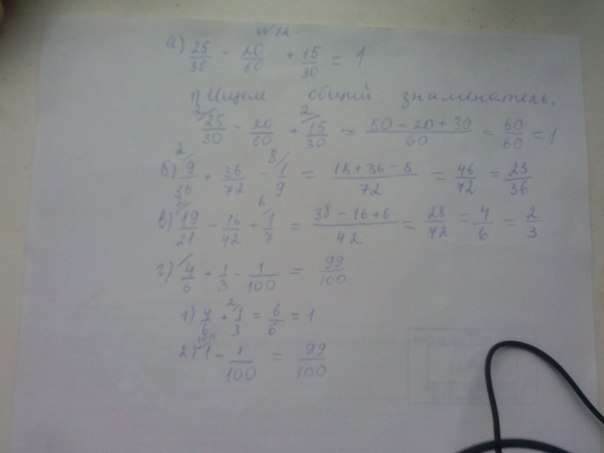 №12
а) 25/30 - 20/60 + 15/30 = 1
1) Ищем общий знаменатель.
2/ 25/30 - 20/60 + 2/ 15/30 = 50-20+30/60 = 60/60 = 1
б) 2/ 9/36 + 36/72 - 8/ 1/9 = 18+36-8/72 = 46/72 = 23/36
в) 2/ 19/21 - 16/42 + 6/ 1/7 = 38-16+6/42 = 28/42 = 4/6 = 2/3
г) 4/6 + 1/3 - 1/100 = 99/100
1) 4/6 + 2/ 1/3 = 6/6 = 1
2) 100/ 1 - 1/100 = 99/100